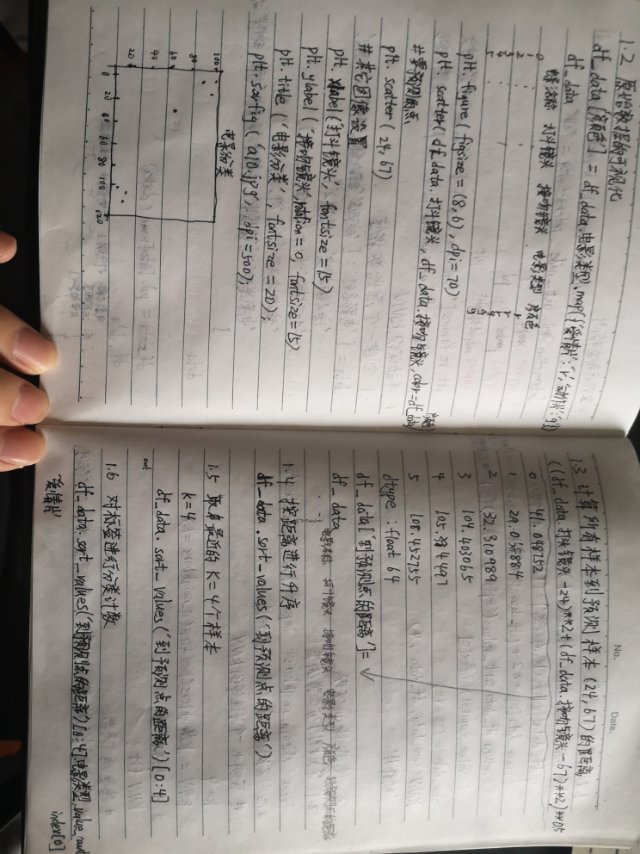 1.2 原始数据的可视化
df_data['颜色'] = df_data.电影类型.map({'爱情片':'r','动作片':'g'})
df_data
打斗镜头 接吻镜头 电影类型 颜色
0
1
2
3
4
5
plt.figure(figsize=(8,6),dpi=70)
plt.scatter(df_data.打斗镜头,df_data.接吻镜头,color=df_data.颜色)
#要预测的点
plt.scatter(24,67)
#其它图像设置
plt.xlabel('打斗镜头',fontsize=15)
plt.ylabel('接吻镜头',rotation=0,fontsize=15)
plt.title('电影分类',fontsize=20);
plt.savfig('a10.jpg',dpi=500);
电影分类
100
80
60
40
20
0 20 40 60 80 100 120
No.
Date.
1.3 计算所有样本到预测样本(24,67)的距离
((df_data.打斗镜头-24)**2+(df_data.接吻镜头-67)**2)**0.5
0 41.048752
1 29.068884
2 32.310989
3 104.403065
4 105.394497
5 108.452755
dtype: float64
df_data['到预测点的距离']=
df_data
1.4 按距离进行升序
df_data.sort_values('到预测点的距离')
1.5 取最近的K=4个样本
k=4
df_data.sort_values('到预测点的距离')[0:4]
out
1.6 对标签进行分类计数
df_data.sort_values('到预测点的距离')[0:4].电影类型.value_count
index[0]
爱情片